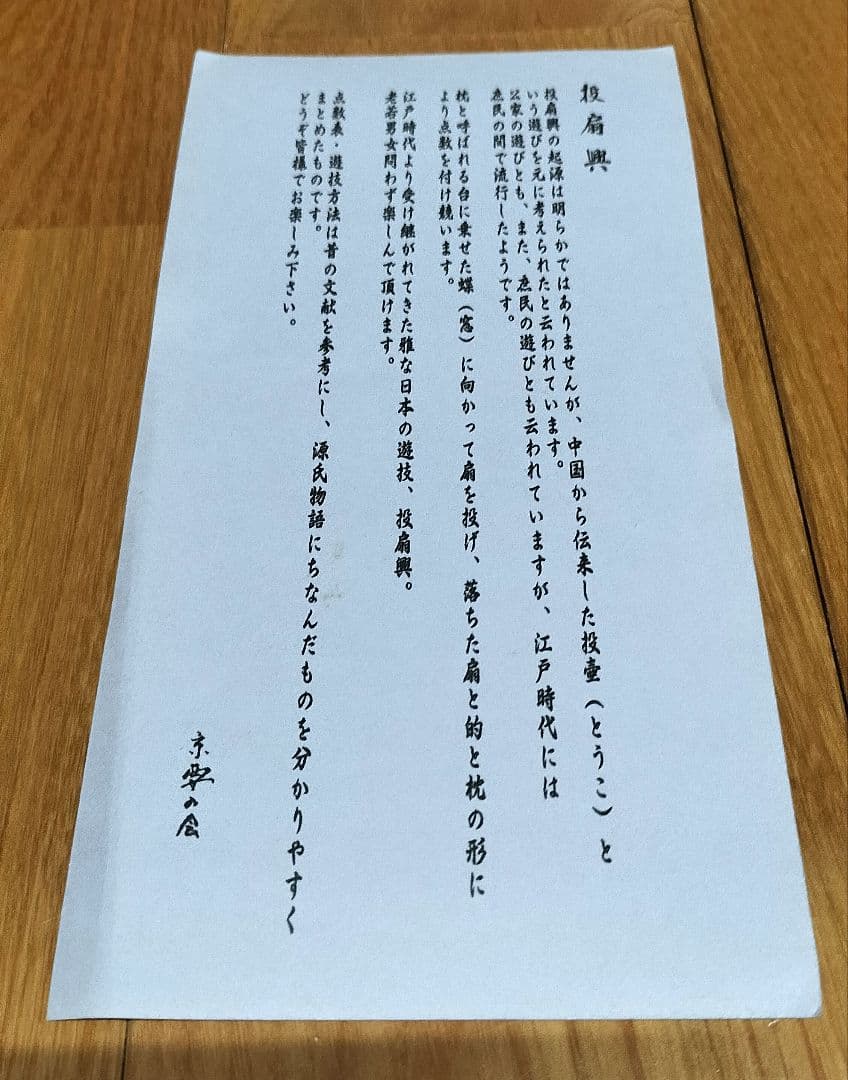 投扇興
投扇興の起源は明らかではありませんが、中国から伝来した投壷（とうこ）と
いう遊びを元に考えられたと云われています。
公家の遊びとも、また、庶民の遊びとも云われていますが、江戸時代には
庶民の間で流行したようです。
枕と呼ばれる台に乗せた蝶（窓）に向かって扇を投げ、落ちた扇と的と枕の形に
より点数を付け競います。
江戸時代より受け継がれてきた雅な日本の遊技、投扇興。
老若男女問わず楽しんで頂けます。
点数表・遊技方法は昔の文献を参考にし、源氏物語にちなんだものを分かりやすく
まとめたものです。
どうぞ皆様でお楽しみ下さい。
京 の会